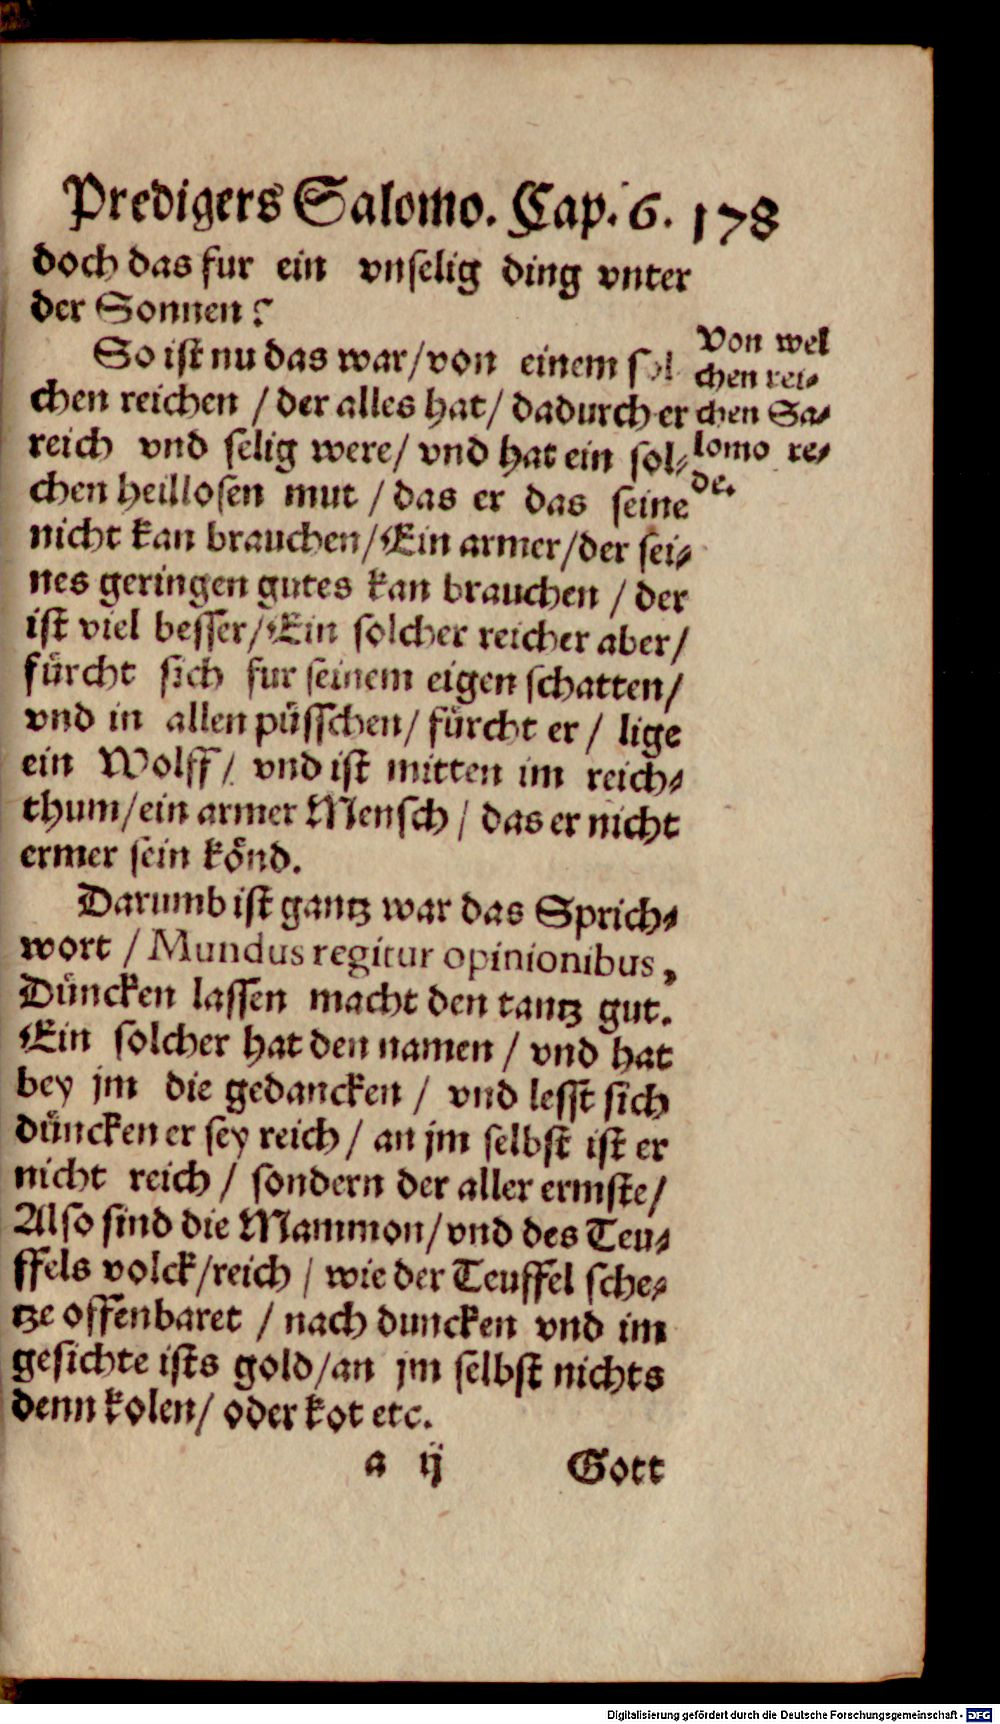 Predigers Salomo. Cap. 6. 178
doch das fur ein vnselig ding vnter
der Sonnen?
So ist nu das war/von einem sol
chen reichen / der alles hat/ dadurch er
reich vnd selig were/ vnd hat ein sol⸗
chen heillosen mut / das er das seine
nicht kan brauchen/Ein armer/der sei⸗
nes geringen gutes kan brauchen / der
ist viel besser/Ein solcher reicher aber/
fürcht sich fur seinem eigen schatten/
vnd in allen püsschen/ fürcht er / lige
ein Wolff/ vnd ist mitten im reich⸗
thum/ein armer Mensch / das er nicht
ermer sein könd.
Von wel
chen rei⸗
chen Sa⸗
lomo re⸗
de.
Darumb ist gantz war das Sprich⸗
wort / Mundus regitur opinionibus,
Düncken lassen macht den tantz gut.
Ein solcher hat den namen / vnd hat
bey jm die gedancken / vnd lesst sich
düncken er sey reich / an jm selbst ist er
nicht reich / sondern der aller ermste/
Also sind die Mammon/vnd des Teu⸗
ffels volck/reich / wie der Teuffel sche⸗
tze offenbaret / nach duncken vnd im
gesichte ists gold/an jm selbst nichts
denn kolen/ oder kot etc.
a ij Gott
Digitalisierung gefördert durch die Deutsche Forschungsgemeinschaft - DFG